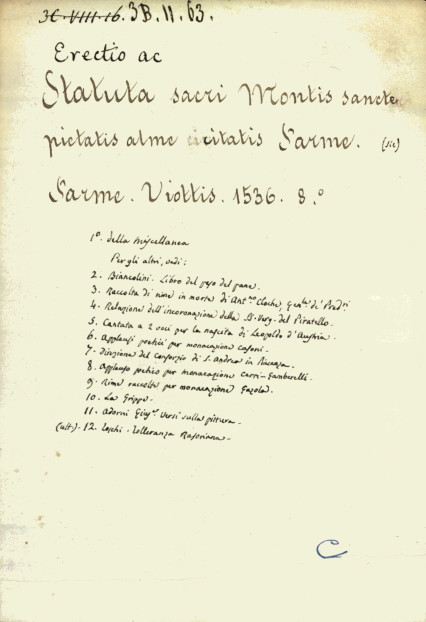 3C-VIII-16. 3B.II.63.
Erectio ac
Statuta sacri Montis sancte
pietatis alme civitatis Parme. (sic)
Parme. Viottis. 1536. 8.°
1°. della Miscellanea
Per gli altri, vedi:
2. Biancolini. Libro del peso del pane.
3. Raccolta di rime in morte di Ant.no Cloche, Gen.le de' Pred.ri
4. Relazione dell'incoronazione della B. Verg. del Piratello.
5. Cantata a 2 voci per la nascita di Leopoldo d'Austria.
6. Applausi poetici per monacazione Cafoni.
7. Divozione del Consorzio di S. Andrea in Piacenza.
8. Applauso poetico per monacazione Carri-Gamberelli.
9. Rime raccolte per monacazione Gazola.
10. La Grippe.
11. Adorni Gius.e Versi sulla pittura.
(ult.) 12. Loschi. Tolleranza Rasoriana.
C